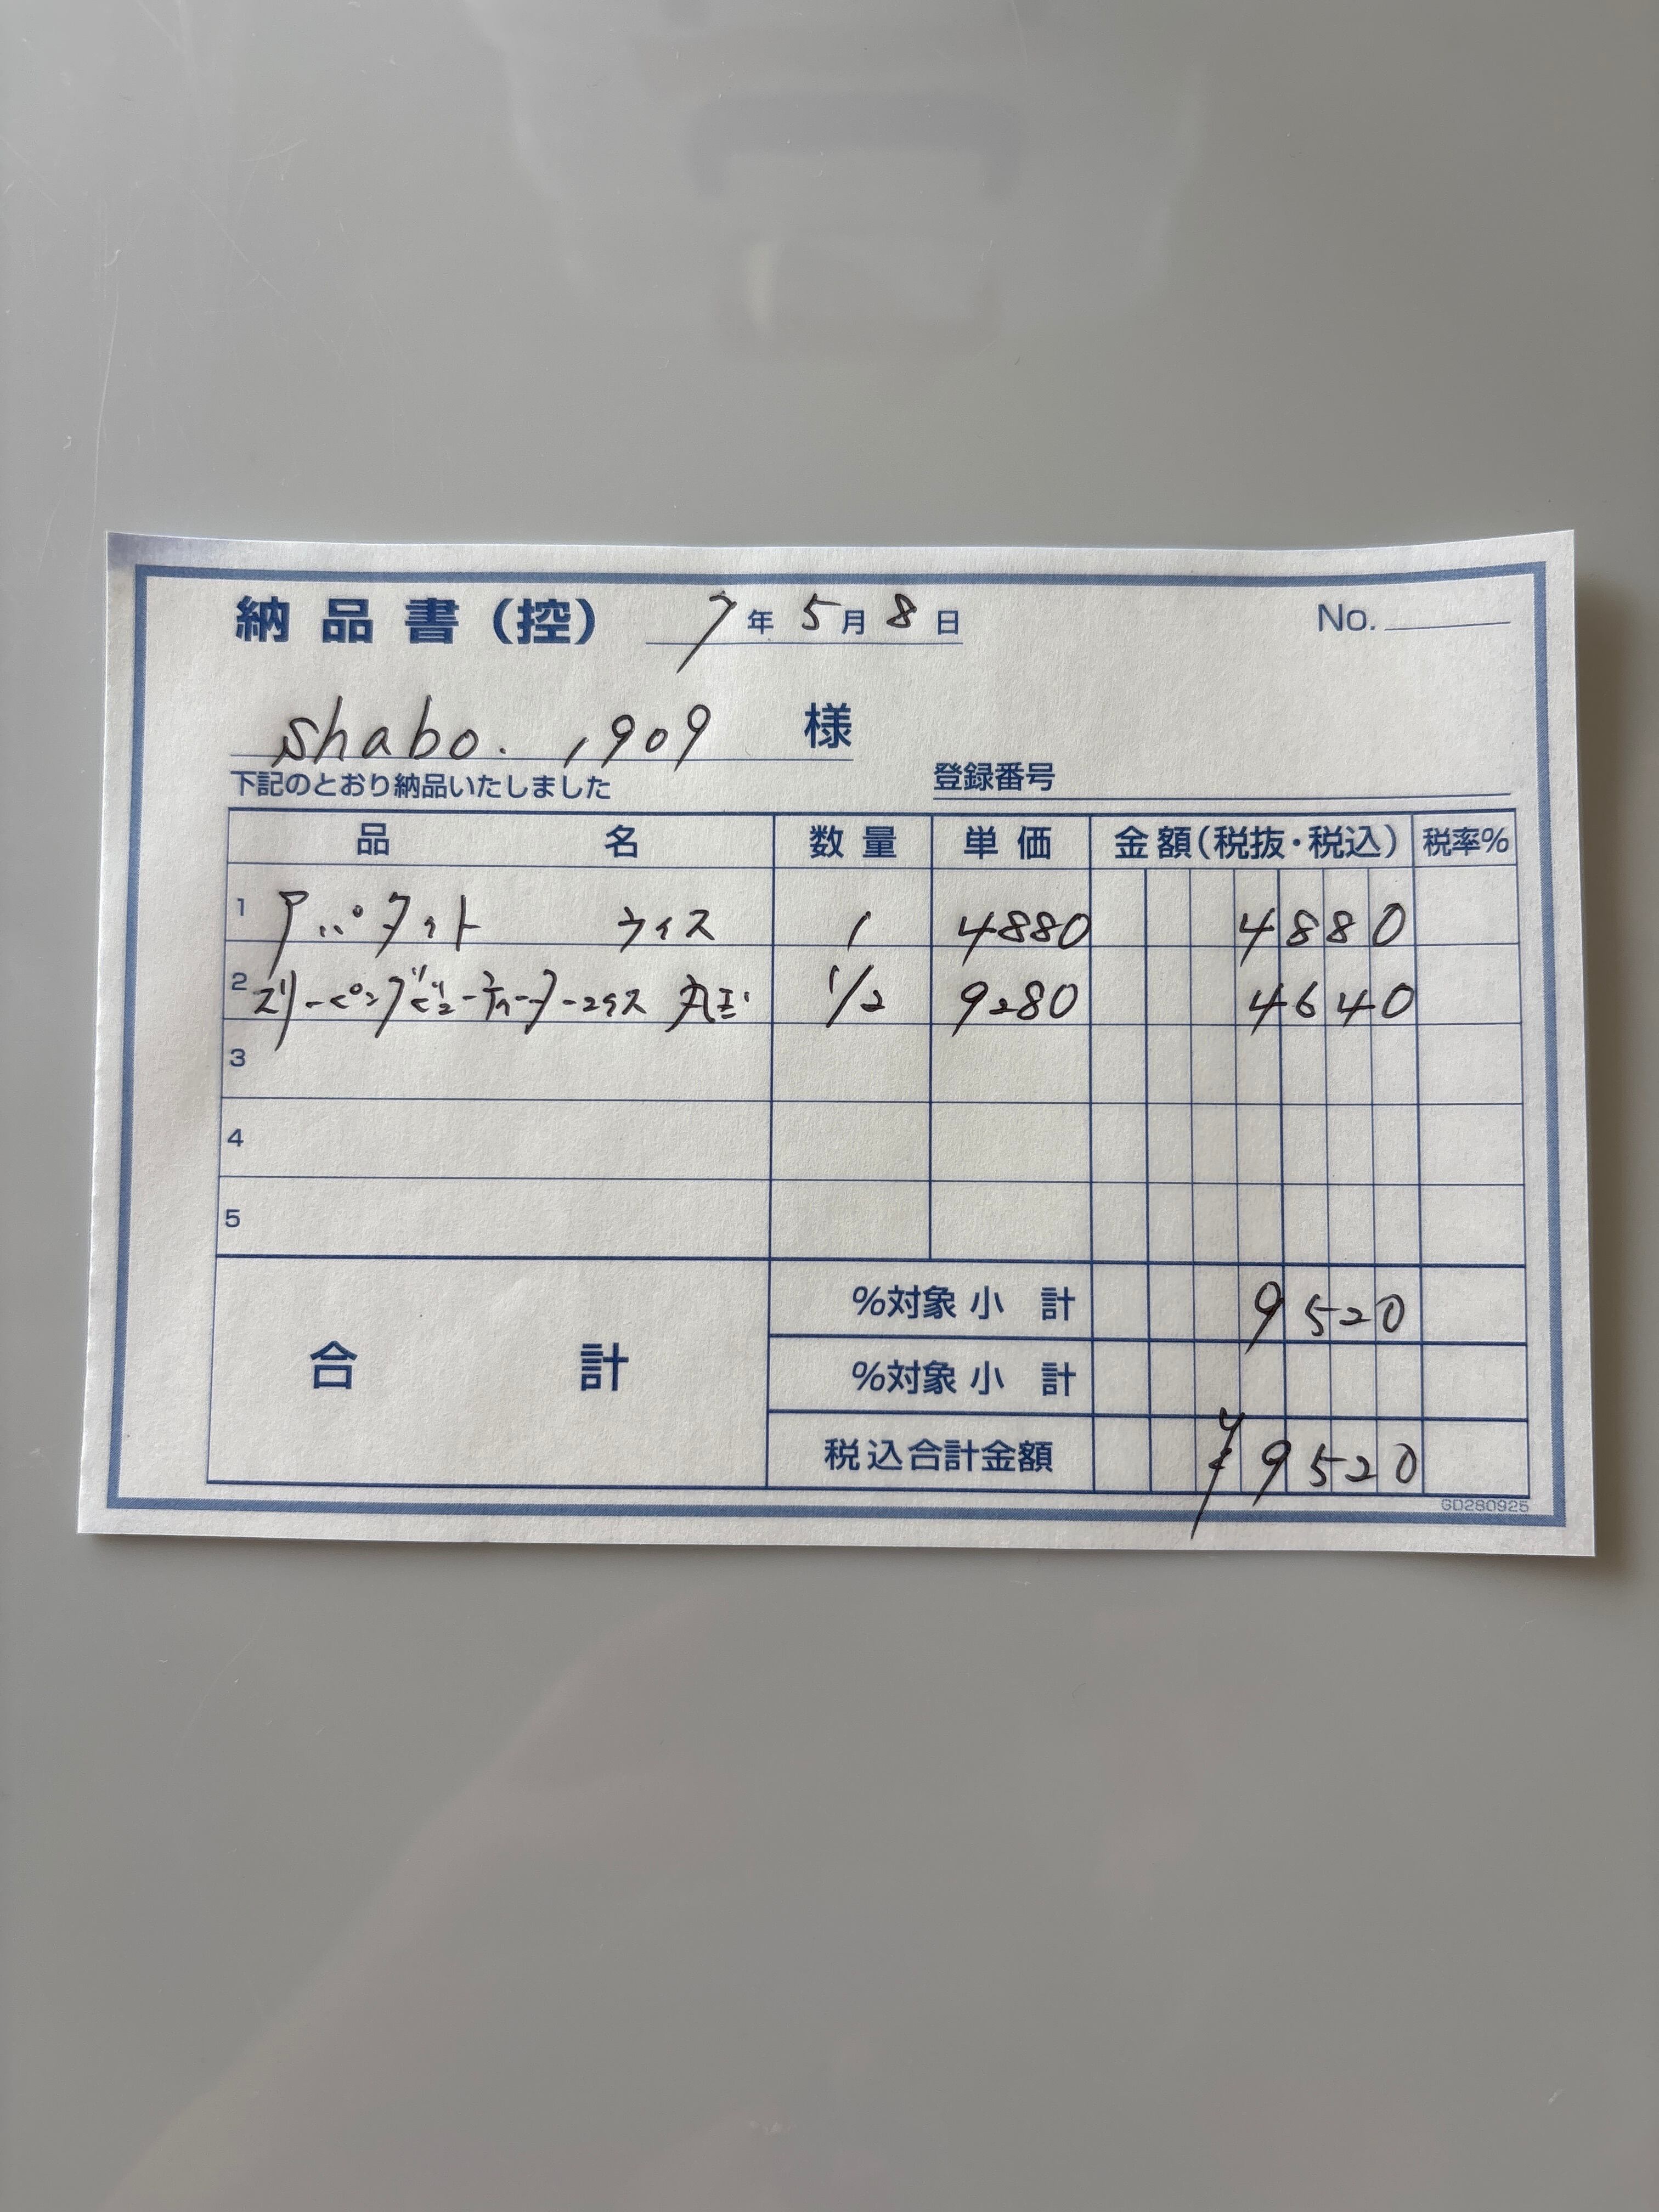 納品書(控) 7年5月8日 No.
shabo. 1909 様
下記のとおり納品いたしました 登録番号
品名 数量 単価 金額(税抜・税込) 税率%
1 アパタイト ウイス 1 4880 4880
2 丸玉 1/2 9280 4640
3
4
5
合計
%対象小計 9520
%対象小計
税込合計金額 ¥9520
GD280925